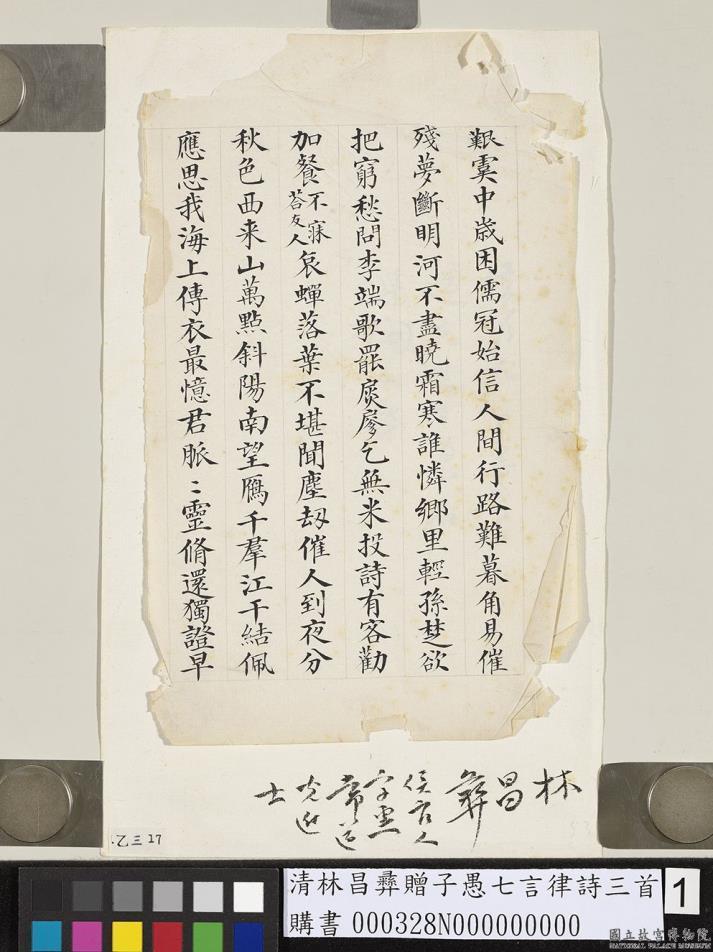 艱虞中歲困儒冠始信人間行路難暮角易催
殘夢斷明河不盡曉霜寒誰憐鄉里輕孫楚欲
把窮愁問李端歌罷扊扅乞無米投詩有客勸
加餐不寐荅友人哀蟬落葉不堪聞塵刼催人到夜分
秋色西来山萬點斜陽南望鴈千羣江干結佩
應思我海上傳衣最憶君脈〻靈脩還獨證早
林昌彝
侯官人
字惠
常道
光進
士
乙三17
清林昌彝贈子愚七言律詩三首
購書 000328N000000000
1
國立故宮博物院
NATIONAL PALACE MUSEUM